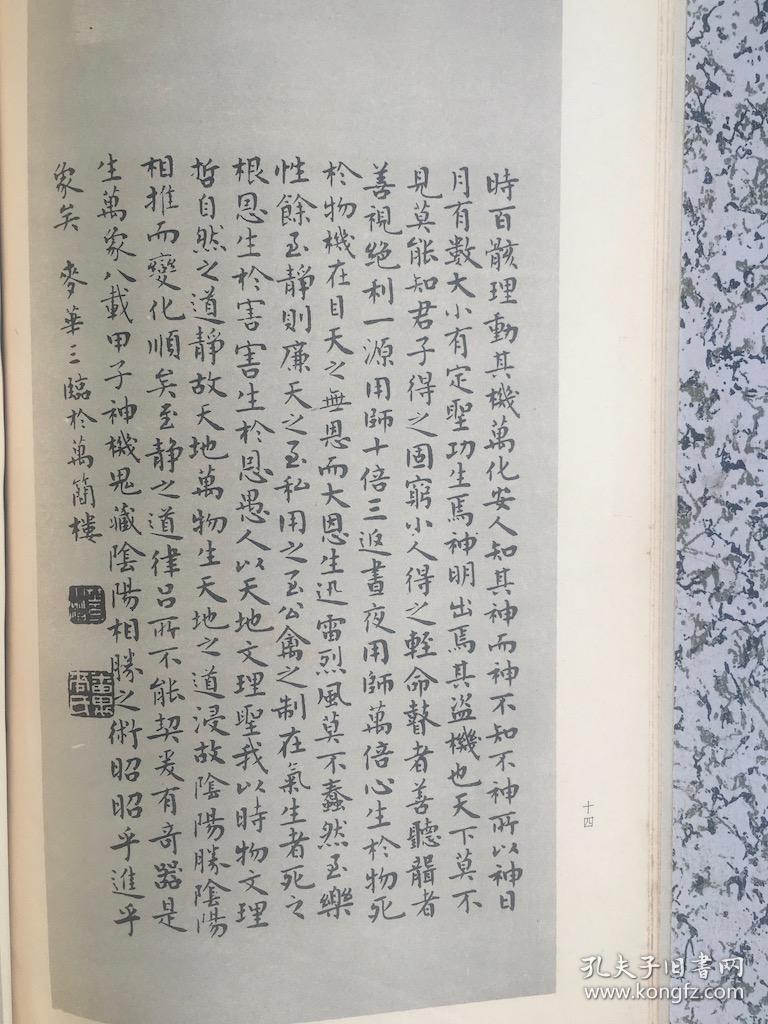 時百骸理動其機萬化安人知其神而神不知不神所以神日
月有數大小有定聖功生焉神明出焉其盜機也天下莫不
見莫能知君子得之固窮小人得之輕命瞽者善聽聾者
善視絕利一源用師十倍三返晝夜用師萬倍心生於物死
於物機在目天之無恩而大恩生迅雷烈風莫不蠢然至樂
性餘至靜則廉天之至私用之至公禽之制在氣生者死之
根恩生於害害生於恩愚人以天地文理聖我以時物文理
哲自然之道靜故天地萬物生天地之道浸故陰陽勝陰陽
相推而變化順矣至靜之道律呂所不能契爰有奇器是
生萬象八載甲子神機鬼藏陰陽相勝之術昭昭乎進乎
象矣 麥華三臨於萬簡樓
十四
孔夫子旧书网
www.kongfz.com